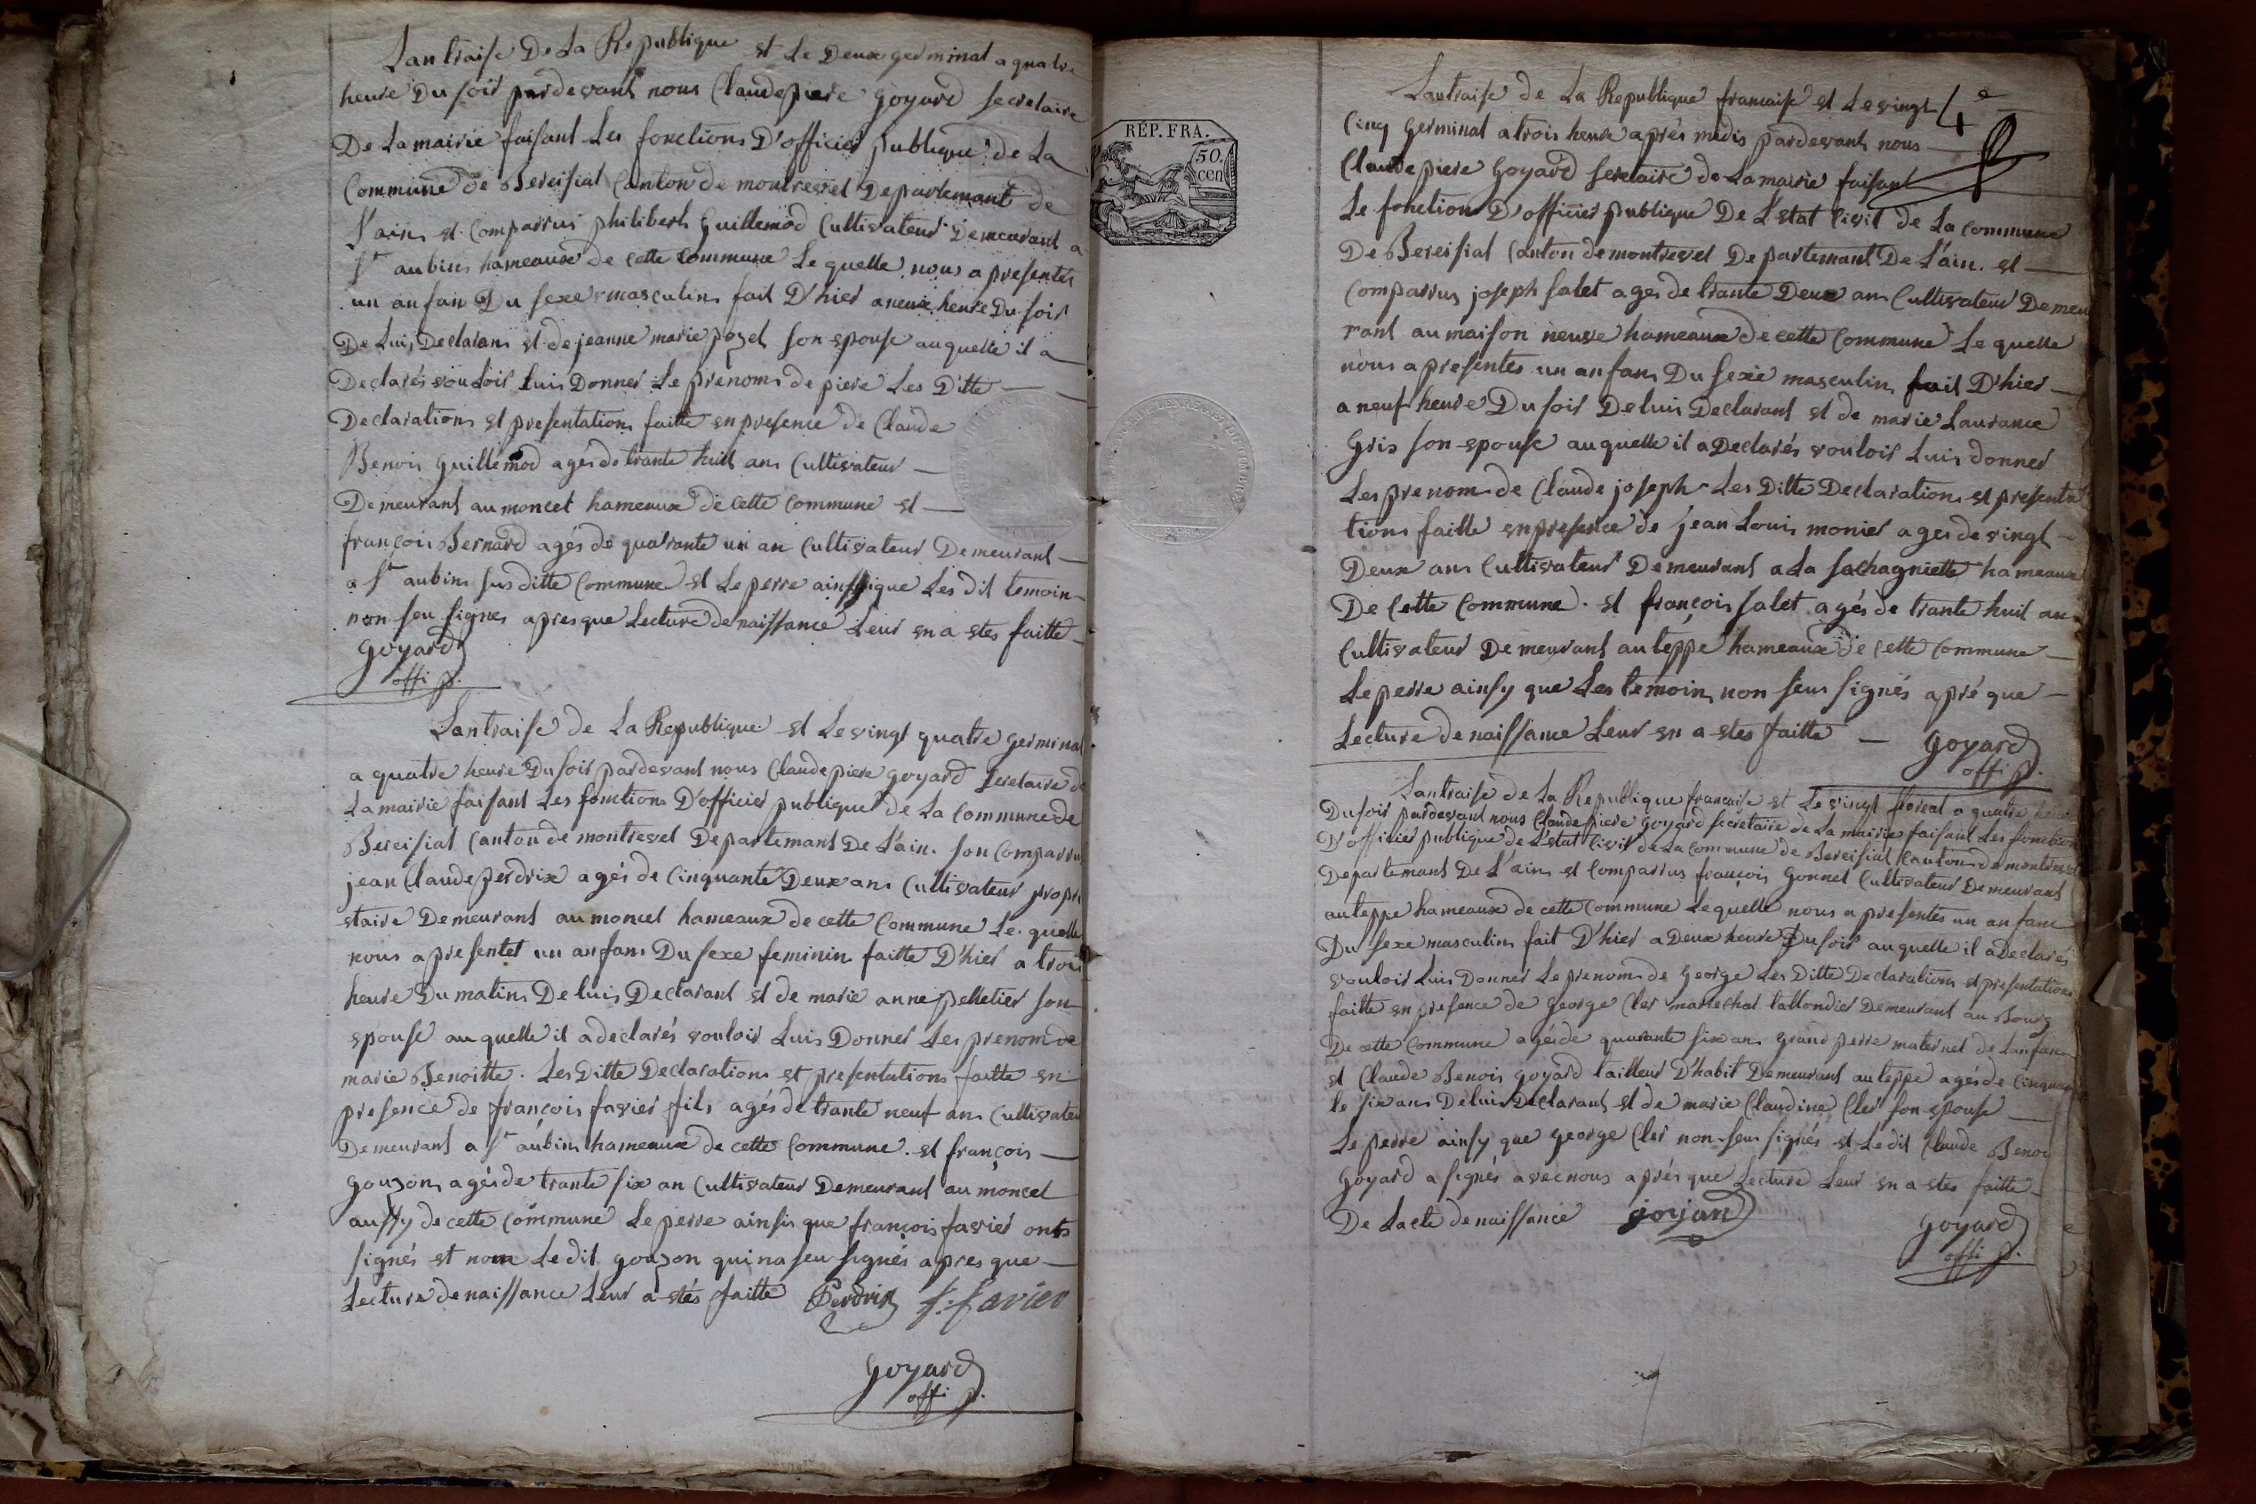 Lantraise De La Republique et Le Deux germinal a quatre
heure Du soir pardevant nous Claude piere Goyard secretaire
De La mairie faisant Les fonctions D'officier publique de La
Commune de Bereisiat Canton de montrevel Departemant de
L'ain et Comparrus philibert Guillemod Cultivateur Demeurant a
St aubins hameaux de cette Commune Le quelle nous a presentés
un anfan Du sexe masculins fait D'hier a neuve heure Du soir
De Luis Declarans et de jeanne marie pozet son spouse auquelle il a
Declarés vouloir Luis Donner Le prenoms de piere Les Ditte
Declarations et presentations faitte en presence de Claude
Benois Guillemod agés de trante huit ans Cultivateur
Demeurant au moncet hameaux de cette Commune et
françois Bernard agés de quarante un an Cultivateur Demeurant
a St aubins sus ditte Commune et Le perre ainssique Les dit temoins
non seu signes apres que Lecture de naissance Leur en a etes faitte
Goyard
offi p.
Lantraise de La Republique et Le vingt quatre germinal
a quatre heure Du soir pardevant nous Claude piere goyard secretaire de
La mairie faisant Les fonctions D'officier publique de La Commune de
Bereisiat Canton de montrevel Departemant De L'ain. son Comparrus
jean Claude perdrix agés de Cinquante Deux ans Cultivateur propri
etaire Demeurant au moncel hameaux de cette Commune Le quelle
nous a presentet un anfans Du sexe feminin faitte D'hier a trois
heure Du matins De luis Declarant et de marie anne pelletier son
spouse auquelle il a declarés vouloir Luis Donner Les prenom de
marie Benoitte. Les Ditte Declarations et presentations faitte en
presence de françois favier fils agés de trante neuf ans Cultivateur
Demeurant a St aubins hameaux de cette Commune. et françois
gouzon agés de trante six an Cultivateur Demeurant au moncel
aussy de cette Commune Le perre ainsis que françois favier onts
signés et nom Le dit gouzon qui na seu signés apres que
Lecture de naissance Leur a etés faitte Perdrix f. favier
Goyard
offi p.
RÉP. FRA.
50.
cen
4e
Lantraise de La Republique francaise et Le vingt
Cinq germinal a trois heure aprés midis pardevant nous
Claude piere Goyard secretaire de La mairie faisant
Le fonctions D'officier publique De L'etat Civil de La commune
De Bereisiat Canton de montrevel Departemant De L'ain. et
Comparrus joseph salet agés de trante Deux ans Cultivateur Demeu
rant au maison neuve hameaux de cette Commune Le quelle
nous a presentés un anfans Du sexe masculins fait D'hier
a neuf heure Du soir De luis Declarant et de marie Laurance
Gris son spouse auquelle il a Declarés vouloir Luis donner
Les prenom de Claude joseph Les Ditte Declarations et presenta
tions faitte en presence de jean Louis monier agés de vingt
Deux ans Cultivateur Demeurant a La sachagniette hameaux
De Cette Commune. et françois salet agés de trante huit an
Cultivateur Demeurant au teppe hameaux de cette Commune
Le perre ainsy que Les temoins non seus signés apré que
Lecture de naissance Leur en a etes faitte
Goyard
offi p.
Lantraise de La Republique francaise et Le vingt floreal a quatre heure
Du soir pardevant nous Claude piere Goyard secretaire de La mairie faisant Les fonction
D'officier publique de L'etat Civil de La Commune de Bereisiat Canton de montrevel
Departemant De L'ain et Comparrus françois Gonnet Cultivateur Demeurant
au teppe hameaux de cette Commune Le quelle nous a presentés un anfanc
Du sexe masculins fait D'hier a Deux heure Du soir auquelle il a Declarés
vouloir Luis Donner Le prenom de George Les Ditte Declarations et presentations
faitte en presence de George Cler marechal tallondier Demeurant au Bourg
De cette Commune agés de quarante six ans grand perre maternel de Lanfanc
et Claude Benois Goyard tailleur D'habit Demeurant au teppe agés de Cinquan
te six ans De luis Declarant et de marie Claudine Cler son spouse
Le perre ainsy que george Cler non seus signés et Le dit Claude Benoi
Goyard a signés avec nous aprés que Lecture Leur en a etes faitte
De Lacte de naissance goyard
Goyard
offi p.